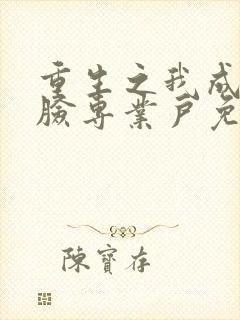 重生之我成
臉專業戶免
陳寶存